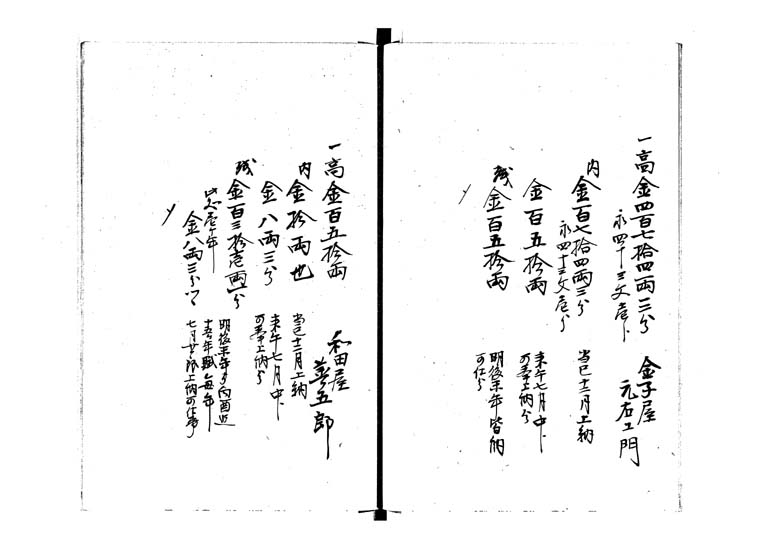 一高金四百七拾四両三分
永四十三文壱分
金子屋
元右エ門
内
金百七拾四両三分
永四十三文壱分
当巳十二月上納
金百五拾両
来午七月中
可奉上納分
残
金百五拾両
明後未年皆納
可仕分
〆
一高金百五拾両
和田屋
善五郎
内
金拾両也
当巳十二月上納
金八両三分
来午七月中
可奉上納分
残
金百三拾壱両一分
明後未年より
十五年賦毎年
此壱ケ年
金八両三分ツヽ
七月
上納可仕事
〆